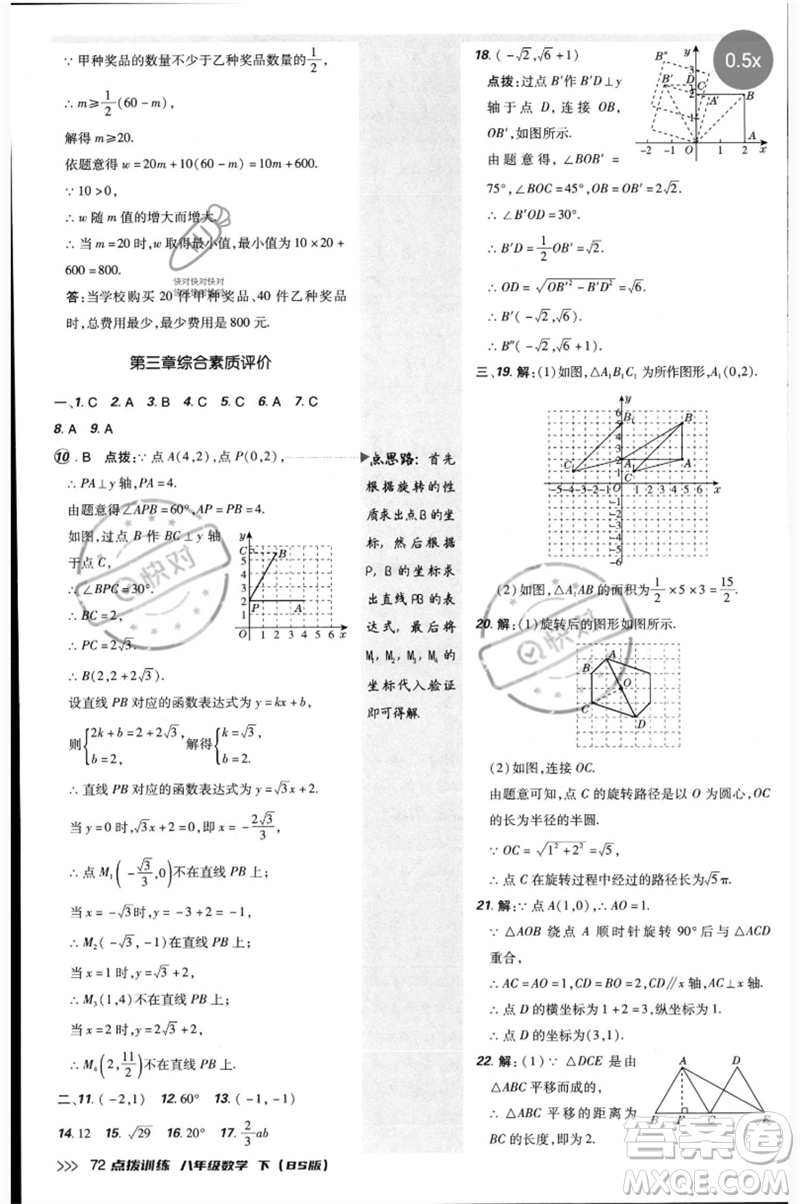 ∵ 甲种奖品的数量不少于乙种奖品数量的1/2,
∴ m≥1/2(60-m),
解得 m≥20.
依题意得 w=20m+10(60-m)=10m+600.
∵ 10>0,
∴ w 随 m 值的增大而增大.
∴ 当 m=20 时,w 取得最小值,最小值为 10×20+
600=800.
答:当学校购买 20 件甲种奖品、40 件乙种奖品
时,总费用最少,最少费用是 800 元.
快对快对快对
快对快对快对
第三章综合素质评价
一、1. C 2. A 3. B 4. C 5. A 6. A 7. C
8. A 9. A
10. B 点拨:∵ 点 A(4,2),点 P(0,2),
∴ PA⊥y 轴,AP=4.
由题意得∠APB=60°,AP=PB=4.
如图,过点 B 作 BC⊥y 轴
于点 C,
∴ ∠BPC=30°.
∴ BC=2,
∴ PC=2√3.
∴ B(2,2+2√3).
设直线 PB 对应的函数表达式为 y=kx+b,
则{2k+b=2+2√3, b=2. 解得{k=√3, b=2.
∴ 直线 PB 对应的函数表达式为 y=√3x+2.
当 y=0 时,√3x+2=0,即 x=-2√3/3,
∴ 点 M₁(-√3/3,0)不在直线 PB 上,
当 x=-√3 时,y=-1,
∴ M₂(-√3,-1)在直线 PB 上,
当 x=1 时,y=√3+2,
∴ M₃(1,4)不在直线 PB 上,
当 x=2 时,y=2√3+2,
∴ M₄(2,11/2)不在直线 PB 上.
二、11. (-2,1) 12. 60° 13. (-1,-1)
14. 12 15. √29 16. 20° 17. 2/3ab
>>> 72 点拨训练 八年级数学 下(BS版)
点思路: 首先
根据旋转的性
质求出点B的坐
标,然后根据
P,B的坐标求
出直线PB的表
达式,最后将
M₁,M₃,M₄的
坐标代入验证
即可得解.
快对
0.5x
18. (-√2,√6+1)
点拨:过点 B′作 B′D⊥y
轴于点 D,连接 OB,
OB′,如图所示.
由题意得,∠BOB′=
75°,∠BOC=45°,OB=OB′=2√2.
∴ ∠B′OD=30°.
∴ B′D=1/2OB′=√2.
∴ OD=√(OB′²-B′D²)=√6.
∴ B′(-√2,√6).
∴ B″(-√2,√6+1).
三、19. 解:(1)如图,△A₁B₁C₁ 为所作图形,A₁(0,2).
(2)如图,△A₁AB 的面积为1/2×5×3=15/2.
20. 解:(1)旋转后的图形如图所示.
(2)如图,连接 OC.
由题意可知,点 C 的旋转路径是以 O 为圆心,OC
的长为半径的半圆.
∵ OC=√(1²+2²)=√5,
∴ 点 C 在旋转过程中经过的路径长为√5π.
21. 解:∵ 点 A(1,0),∴ AO=1.
∵ △AOB 绕点 A 顺时针旋转 90°后与△ACD
重合,
∴ AC=AO=1,CD=OB=2,CD∥x 轴,AC⊥x 轴.
∴ 点 D 的横坐标为 1+2=3,纵坐标为 1.
∴ 点 D 的坐标为(3,1).
22. 解:(1)∵ △DCE 是由
△ABC 平移而成的,
∴ △ABC 平移的距离为
答案圈
MXQE.COM